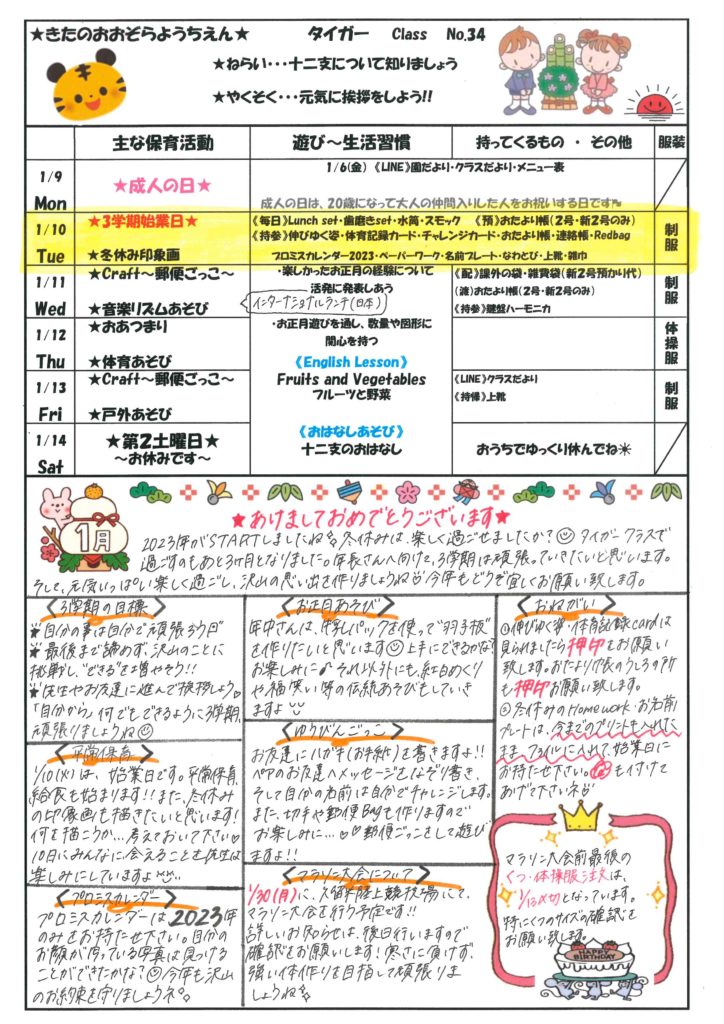 ★きたのおおぞらようちえん★ タイガー Class No.34
★ねらい・・・十二支について知りましょう
★やくそく・・・元気に挨拶をしよう!!
主な保育活動 遊び～生活習慣 持ってくるもの ・ その他 服装
1/9 Mon
★成人の日★
1/6(金) 《LINE》園だより・クラスだより・メニュー表
成人の日は、20歳になって大人の仲間入りした人をお祝いする日です
1/10 Tue
★3学期始業日★
★冬休み印象画
《毎日》Lunch set・歯磨きset・水筒・スモック 《預》おたより帳(2号・新2号のみ)
《持参》伸びゆく姿・体育記録カード・チャレンジカード・おたより帳・連絡帳・Redbag
プロミスカレンダー2023・ペーパーワーク・名前プレート・なわとび・上靴・雑巾
制服
1/11 Wed
★Craft～郵便ごっこ～
★音楽リズムあそび
・楽しかったお正月の経験について
活発に発表しあう
インターナショナルランチ(日本)
《配》課外の袋・雑費袋(新2号預かり代)
(渡)おたより帳(2号・新2号のみ)
《持参》鍵盤ハーモニカ
制服
1/12 Thu
★おあつまり
★体育あそび
・お正月遊びを通し、数量や図形に
関心を持つ
《English Lesson》
Fruits and Vegetables
フルーツと野菜
体操服
1/13 Fri
★Craft～郵便ごっこ～
★戸外あそび
《LINE》クラスだより
《持帰》上靴
制服
1/14 Sat
★第2土曜日★
～お休みです～
《おはなしあそび》
十二支のおはなし
おうちでゆっくり休んでね☀
1月
★あけましておめでとうございます★
2023年がSTARTしましたね。冬休みは、楽しく過ごせましたか?☺タイガークラスで
過ごすのもあと3ヶ月となりました。年長さんへ向けて、3学期は頑張っていきたいと思います。
そして、元気いっぱい楽しく過ごし、沢山の思い出を作りましょうね 今年もどうぞ宜しくお願い致します。
〈3学期の目標〉
★自分の事は自分で頑張ろう
★最後まで諦めず、沢山のことに
挑戦し、"できる"を増やそう!!
★先生やお友達に進んで挨拶しよう
「自分から」何でもできるように3学期、
頑張りましょうね☺
〈平常保育〉
1/10(火)は、始業日です。平常保育、
給食も始まります!!また、冬休み
の印象画も描きたいと思います!
何を描こうか…考えておいて下さい♡
10日にみんなに会えることを先生は
楽しみにしていますよ
〈プロミスカレンダー〉
プロミスカレンダーは2023年
のみをお持たせ下さい。自分の
お顔が写っている写真は見つける
ことができたかな?☺今年も沢山
のお約束を守りましょうネ
〈お正月あそび〉
年中さんは、牛乳パックを使って"羽子板"
を作りたいと思います☺上手にできるかな?
お楽しみに♪それ以外にも、紅白めくり
や福笑い等の伝統あそびもしていき
ますよ
〈ゆうびんごっこ〉
お友達にハガキ(お手紙)を書きますよ!!
ペアのお友達へメッセージをなぞり書き、
そして自分の名前は自分でチャレンジします。
また、切手や郵便Bagも作りますので
お楽しみに…♡♡郵便ごっこをして遊び
ますよ!!
〈マラソン大会について〉
1/30(月)に、久留米陸上競技場にて、
マラソン大会を行う予定です!!
詳しいお知らせは、後日行いますので
確認をお願いします!寒さに負けず、
強い体作りを目指して頑張りま
しょうね
〈おねがい〉
☺伸びゆく姿・体育記録cardは
見られましたら押印をお願い
致します。おたより帳のうしろの所
も押印お願い致します。
☺冬休みのHomework・お名前
プレートは、今までのプリントも入れた
まま、ファイルに入れて、始業日に
お持たせ下さい。も付けて
あげて下さいネ
マラソン大会前最後の
くつ・体操服注文は、
1/13〆切となっています。
特にくつのサイズの確認を
お願い致します。
HAPPY BIRTHDAY